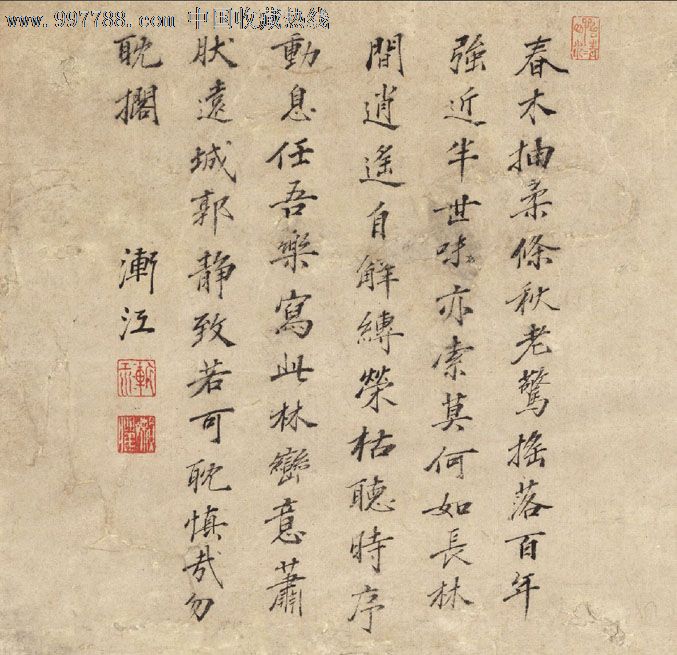 www.997788.com 中国收藏热线
春木抽柔條秋老驚搖落百年
強近半世味亦索莫何如長林
間逍遙自解縛榮枯聽時序
動息任吾樂寫此林巒意蕭
肰遠城郭静致若可耽慎哉勿
耽擱
漸江